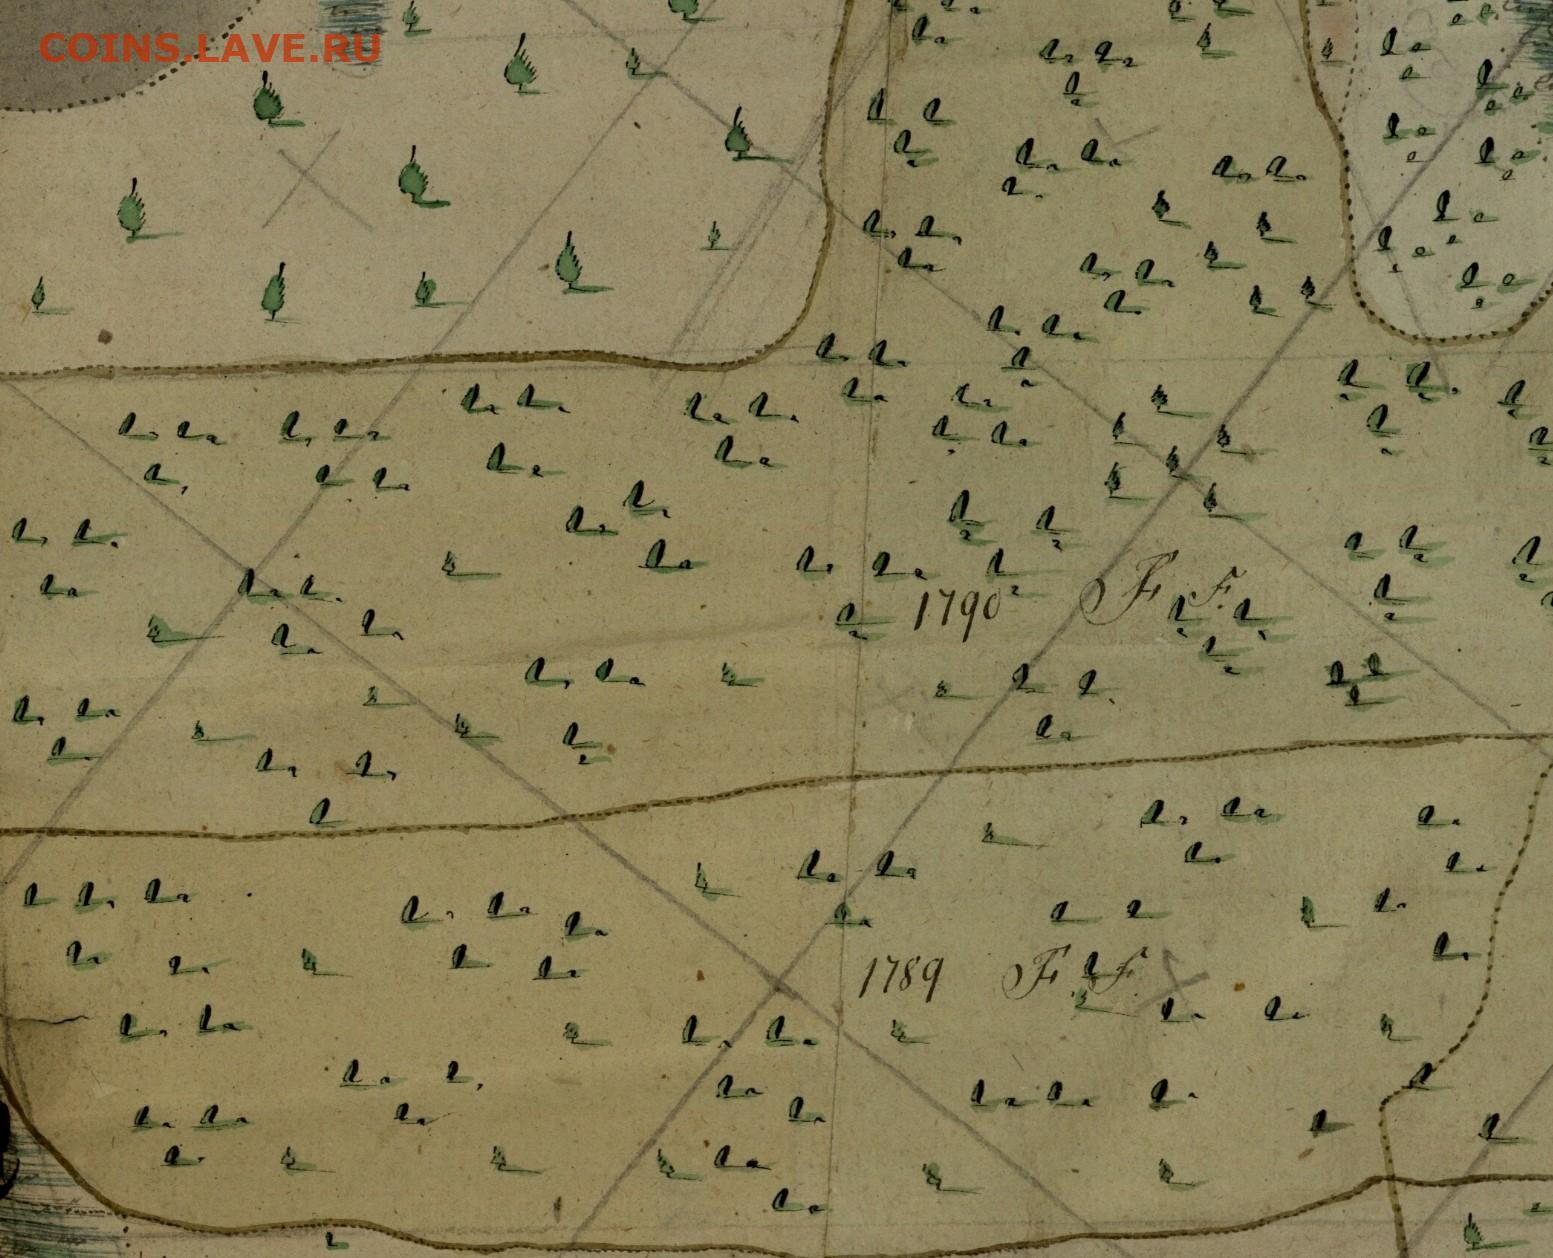 COINS.LAVE.RU
1790 F F.
1789 F F